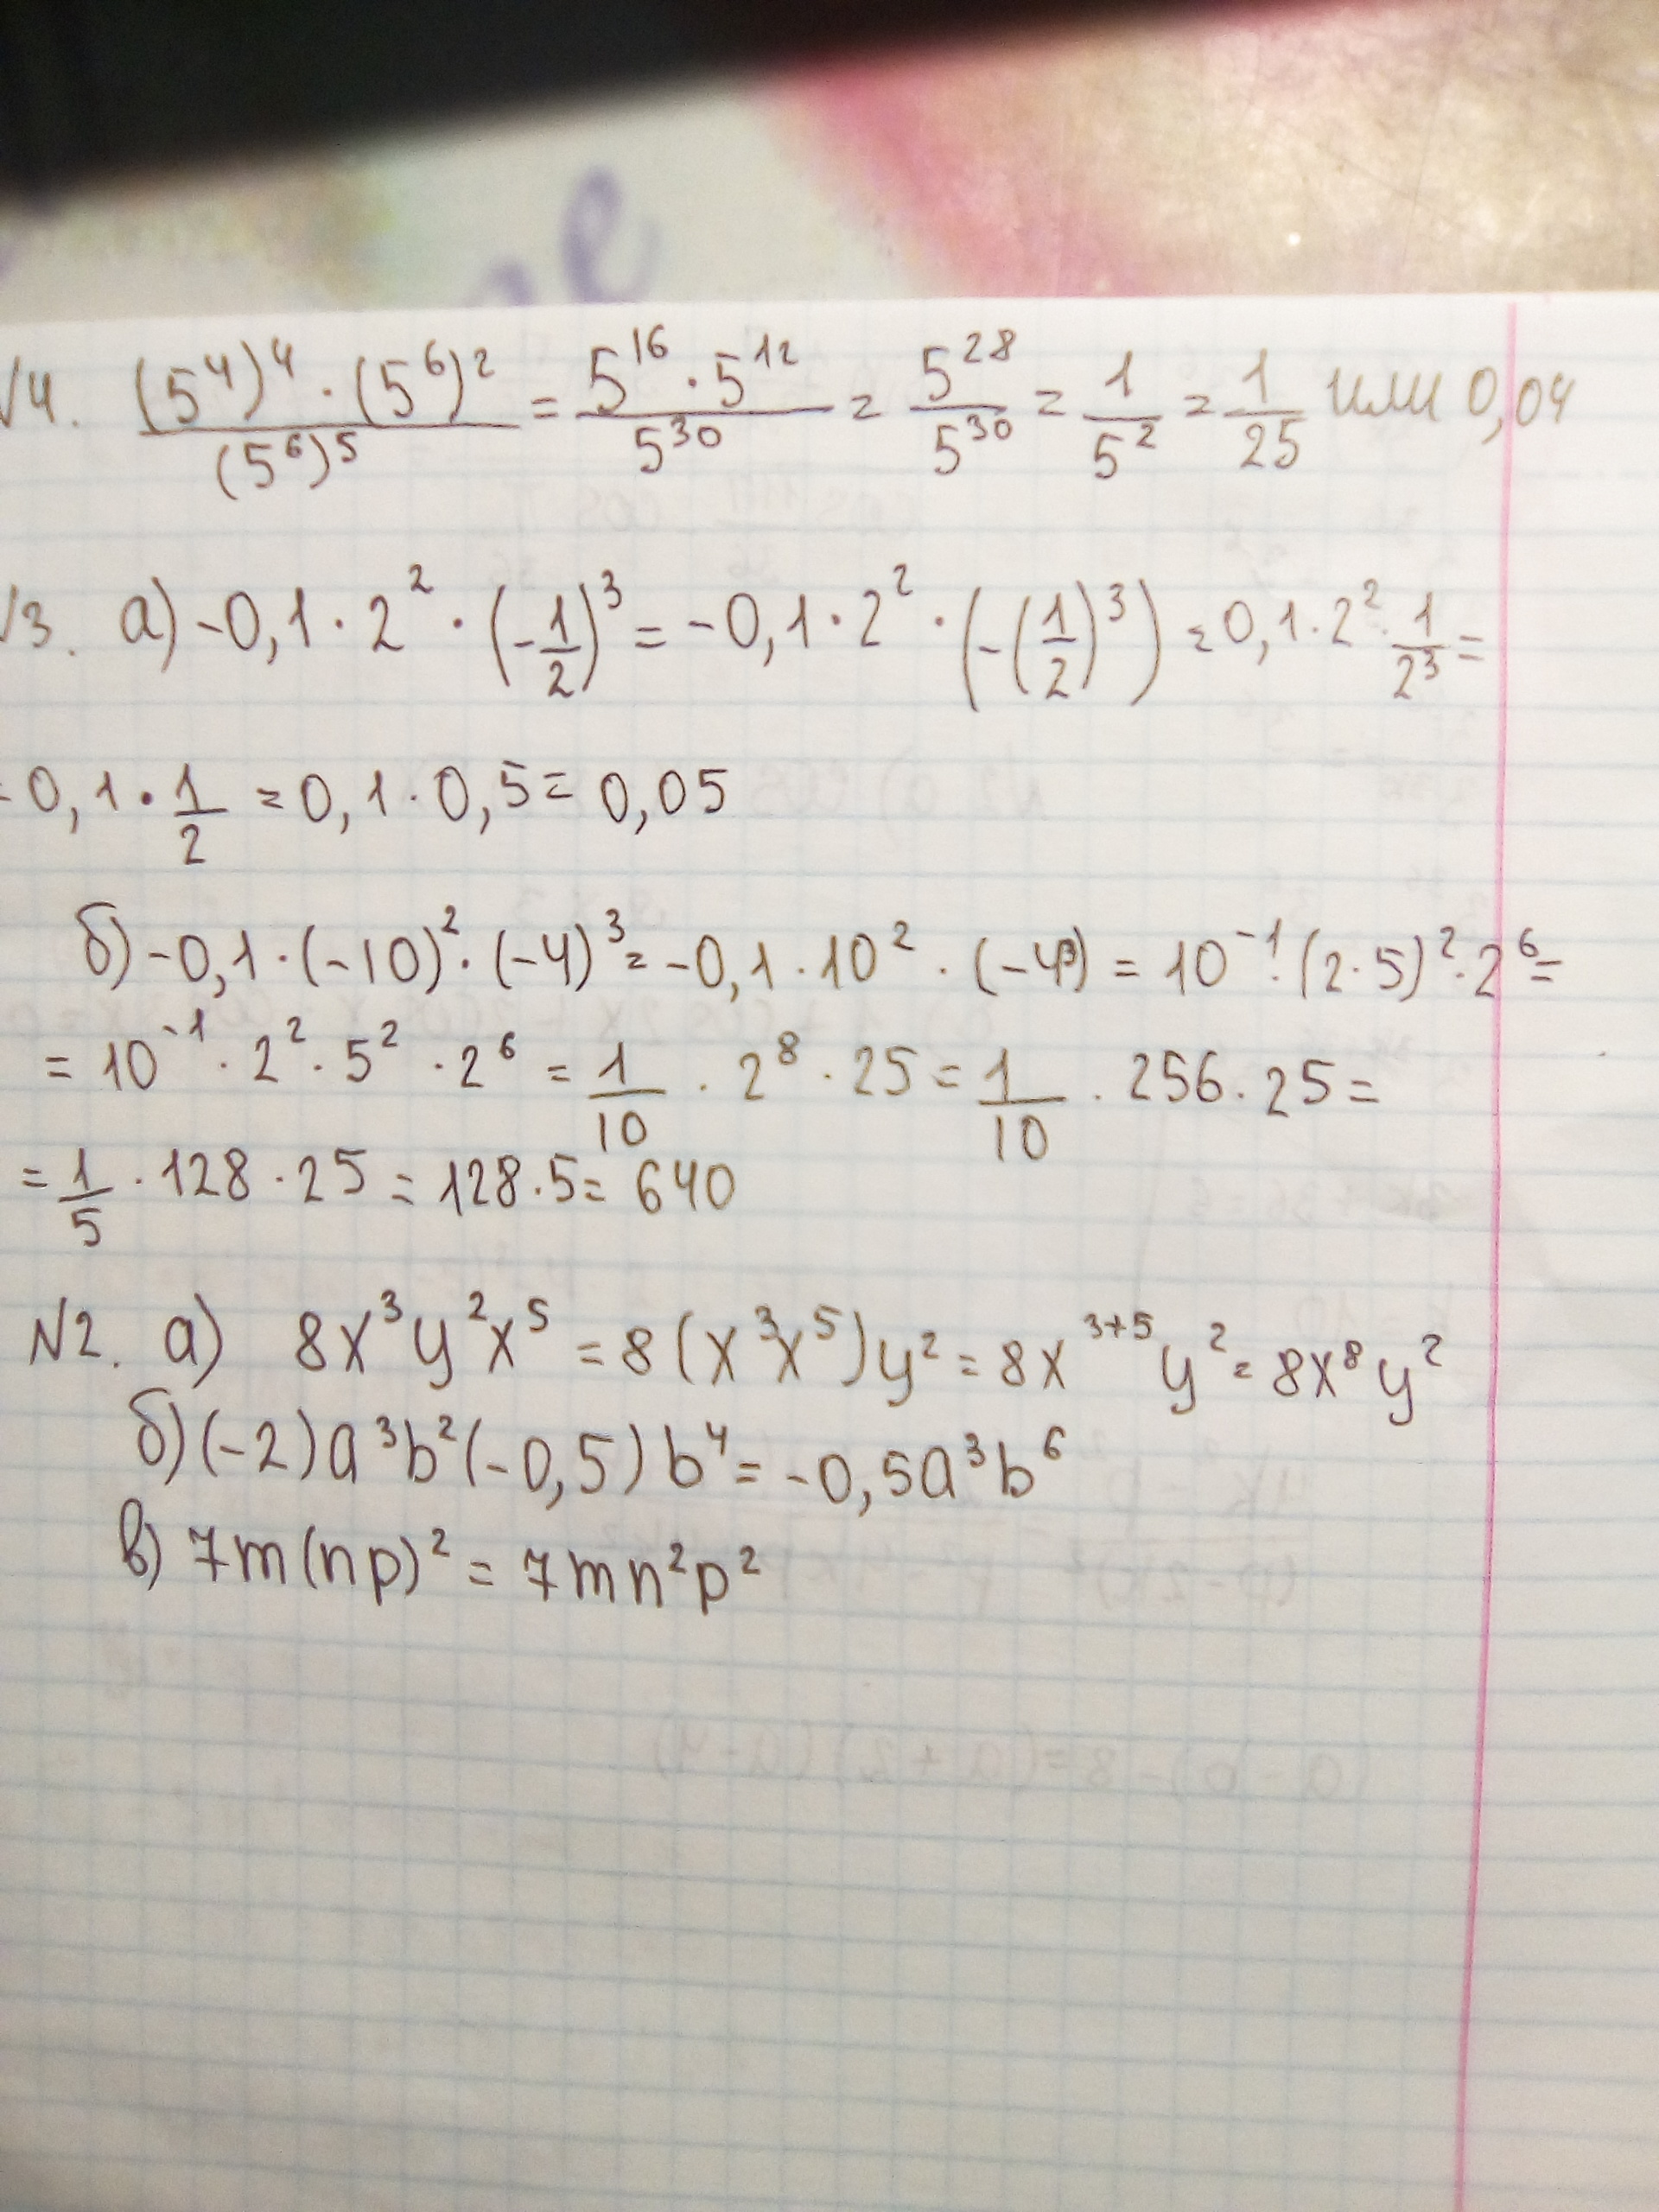 №4. (5⁴)⁴ · (5⁶)² / (5⁶)⁵ = 5¹⁶ · 5¹² / 5³⁰ = 5²⁸ / 5³⁰ = 1/5² = 1/25 или 0,04
№3. а) -0,1 · 2² · (-1/2)³ = -0,1 · 2² · (-(1/2)³) = 0,1 · 2² · 1/2³ =
= 0,1 · 1/2 = 0,1 · 0,5 = 0,05
б) -0,1 · (-10)² · (-4)³ = -0,1 · 10² · (-4³) = 10⁻¹ · (2·5)² · 2⁶ =
= 10⁻¹ · 2² · 5² · 2⁶ = 1/10 · 2⁸ · 25 = 1/10 · 256 · 25 =
= 1/5 · 128 · 25 = 128 · 5 = 640
№2. а) 8x³y²x⁵ = 8(x³x⁵)y² = 8x³⁺⁵y² = 8x⁸y²
б) (-2)a³b²(-0,5)b⁴ = -0,5a³b⁶
в) 7m(np)² = 7mn²p²